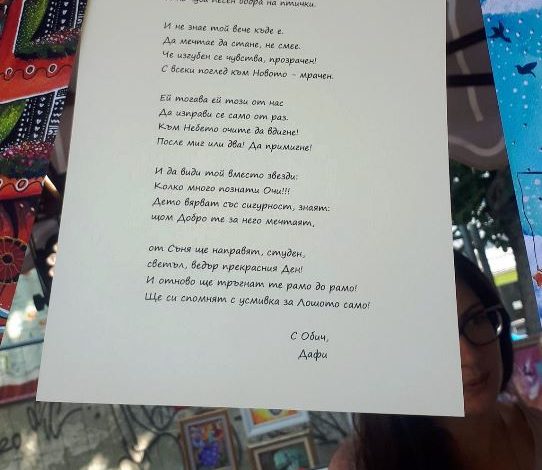 песен добра на птички.
И не знае той вече къде е.
Да мечтае да стане, не смее.
Че изгубен се чувства, прозрачен!
С всеки поглед към Новото – мрачен.
Ей тогава ей този от нас
Да изправи се само от раз.
Към Небето очите да вдигне!
После миг или два! Да примигне!
И да види той вместо звезди:
Колко много познати Очи!!!
Дето вярват със сигурност, знаят:
щом Добро те за него мечтаят,
от Съня ще направят, студен,
светъл, ведър прекрасния Ден!
И отново ще тръгнат те рамо до рамо!
Ще си спомнят с усмивка за Лошото само!
С Обич,
Дафи